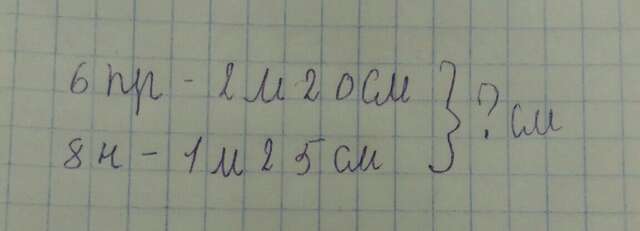 6 пр - 2 м 20 см
8 н - 1 м 25 см } ? см